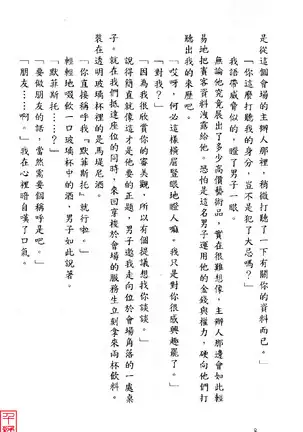 是從這個會場的主辦人那裡，稍微打聽了一下有關你的資料而已。」
「你這麼打聽我的身分，豈不是犯了大忌嗎？」
我語帶威脅似的，瞪了男子一眼。
無論他究竟展出了多少高價藝術品，實在很難想像，主辦人那邊會如此輕
易地把賓客資料洩露給他。恐怕是這名男子運用他的金錢與權力，硬向他們打
聽出我的來歷吧。
「哎呀，何必這樣橫眉豎眼地瞪人嘛。我只是對你很感興趣罷了。」
「對我？」
「因為我很欣賞你的審美觀，所以有個提議想找你談談。」
說得簡直就像這才是他要的正題，男子邀我走向位於會場角落的一處桌
子。就在我們抵達座位的同時，來回穿梭於會場的服務生立刻拿來兩杯飲料。
裝在透明玻璃杯裡的是馬堤尼酒。
「你直接稱呼我『默菲斯托』就行啦。」
輕輕地啜飲一口玻璃杯中的酒，男子如此說著。
「默菲斯托……？」
「要做朋友的話，當然需要個稱呼是吧。」
「朋友……啊。」我在心裡暗自嘆了口氣。